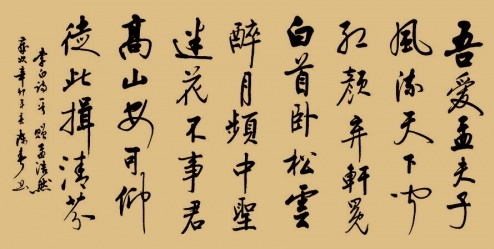 吾愛孟夫子
風流天下聞
紅顏弃軒冕
白首卧松雲
醉月頻中聖
迷花不事君
高山安可仰
徒此揖清芬
李白詩一首贈孟浩然
歲次辛卯